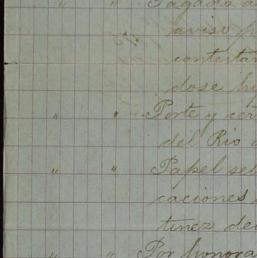 " " Pagado a
aviso p
contestan
dose hy
" " Porte y cer
del Rio
" " Papel sel
caciones
tinez de
" " Por honora